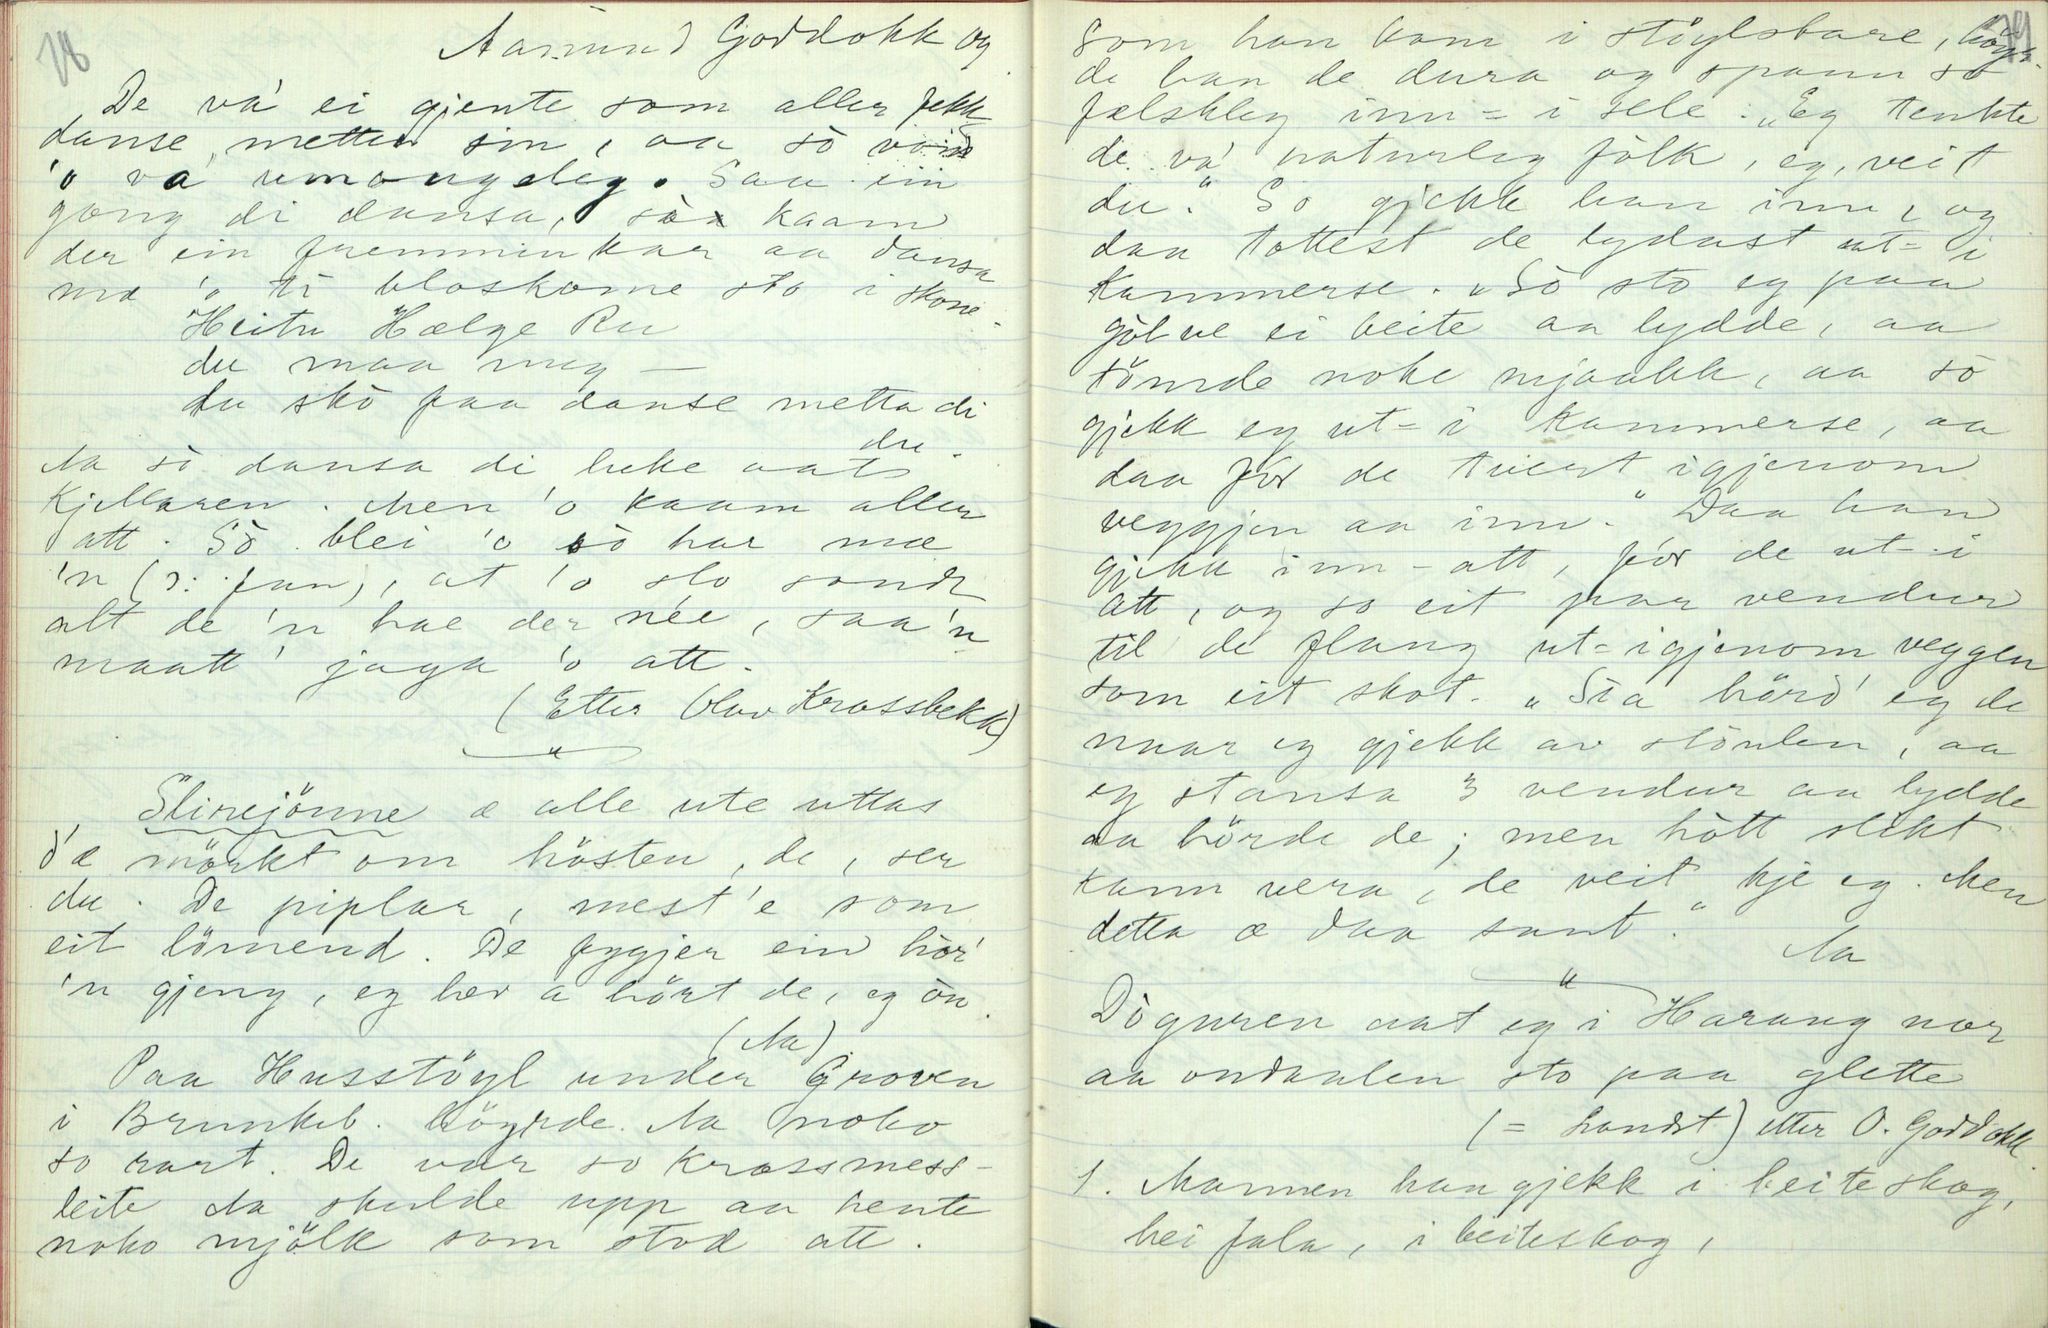 18
Aasmund Goddokk og
De va' ei gjente som aller fekk
danse metten sin, aa sò
'o va umongeleg. Saa ein
gong di dansa, so kaam
der ein fremminkar aa dansa
mæ 'o ti bloskorne sto i skone.
"Heitu Hælge Ru
du maa meg —
du skò faa danse metta di
du."
Aa sò dansa di beke aat
Kjellaren. Men 'o kaam aller
att. Sò blei 'o sò har mæ
'n (ɔ: fan), at 'o slo sondt
alt de 'n hae der née, saa 'n
maatt' jaga 'o att.
(Etter Olav Krossbekk)
"
Slirejönne æ alle ute uttas
d'æ mörkt om hösten, de, ser
du. De piplar, mest 'e som
eit lömend. De fygjer ein hór'
'n gjeng, eg hev a hört de, eg òn.
(Aa)
Paa Husstöyl under Groven
i Brunkeb. höyrde Aa noko
so rart. De var so krossmess-
leite Aa skulde upp aa hente
noko mjölk som stod att.
19
Som han kom i stöylsbare, höyr-
de han de dura og spann so
fælsleg inn- i sele. "Eg tenkte
de va' naturleg fólk, eg, veit
du." So gjekk han inn, og
daa tottest de lydast ut- i
kammerse. "Sò sto eg paa
gòlve ei beite aa lydde, aa
tömde noke mjaakk, aa sò
gjekk eg ut- i kammerse, aa
daa fór de tvert igjenom
veggjen aa inn." Daa han
gjekk inn-att, fór de ut- i
att, og so eit par vendur
til de flaug ut- igjenom veggen
som eit skot. "Sia hörd' eg de
naar eg gjekk av stöulen, aa
eg stansa 3 vendur aa lydde
aa hörde de; men hòtt slikt
kann vera, de veit kje eg. Men
detta æ daa sant."
Aa
"
Dòguren aat eg i Haraug nor
aa ondaalen sto paa glette
(= handst) etter O. Goddokk
1. Mannen han gjekk i beiteskog,
hei fala, i beiteskog,